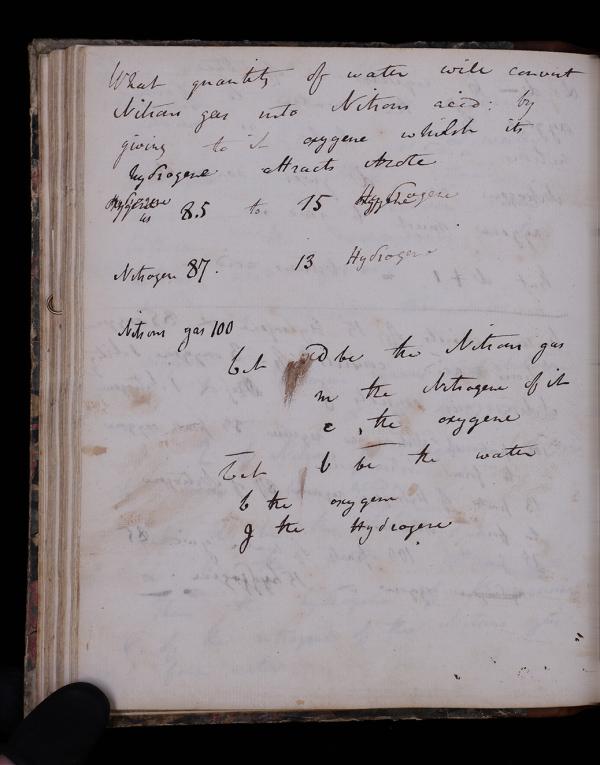 What quantity of water will convert
Nitrous gas into Nitrous acid: by
giving to it oxygene whilst its
hydrogene attracts Azote
as 85 to 15 Hydrogene
Nitrogene 87. 13 Hydrogene
Nitrous gas 100
Let d be the Nitrous gas
m the Nitrogene of it
e, the oxygene
Let b be the water
b the oxygene
g the Hydrogene